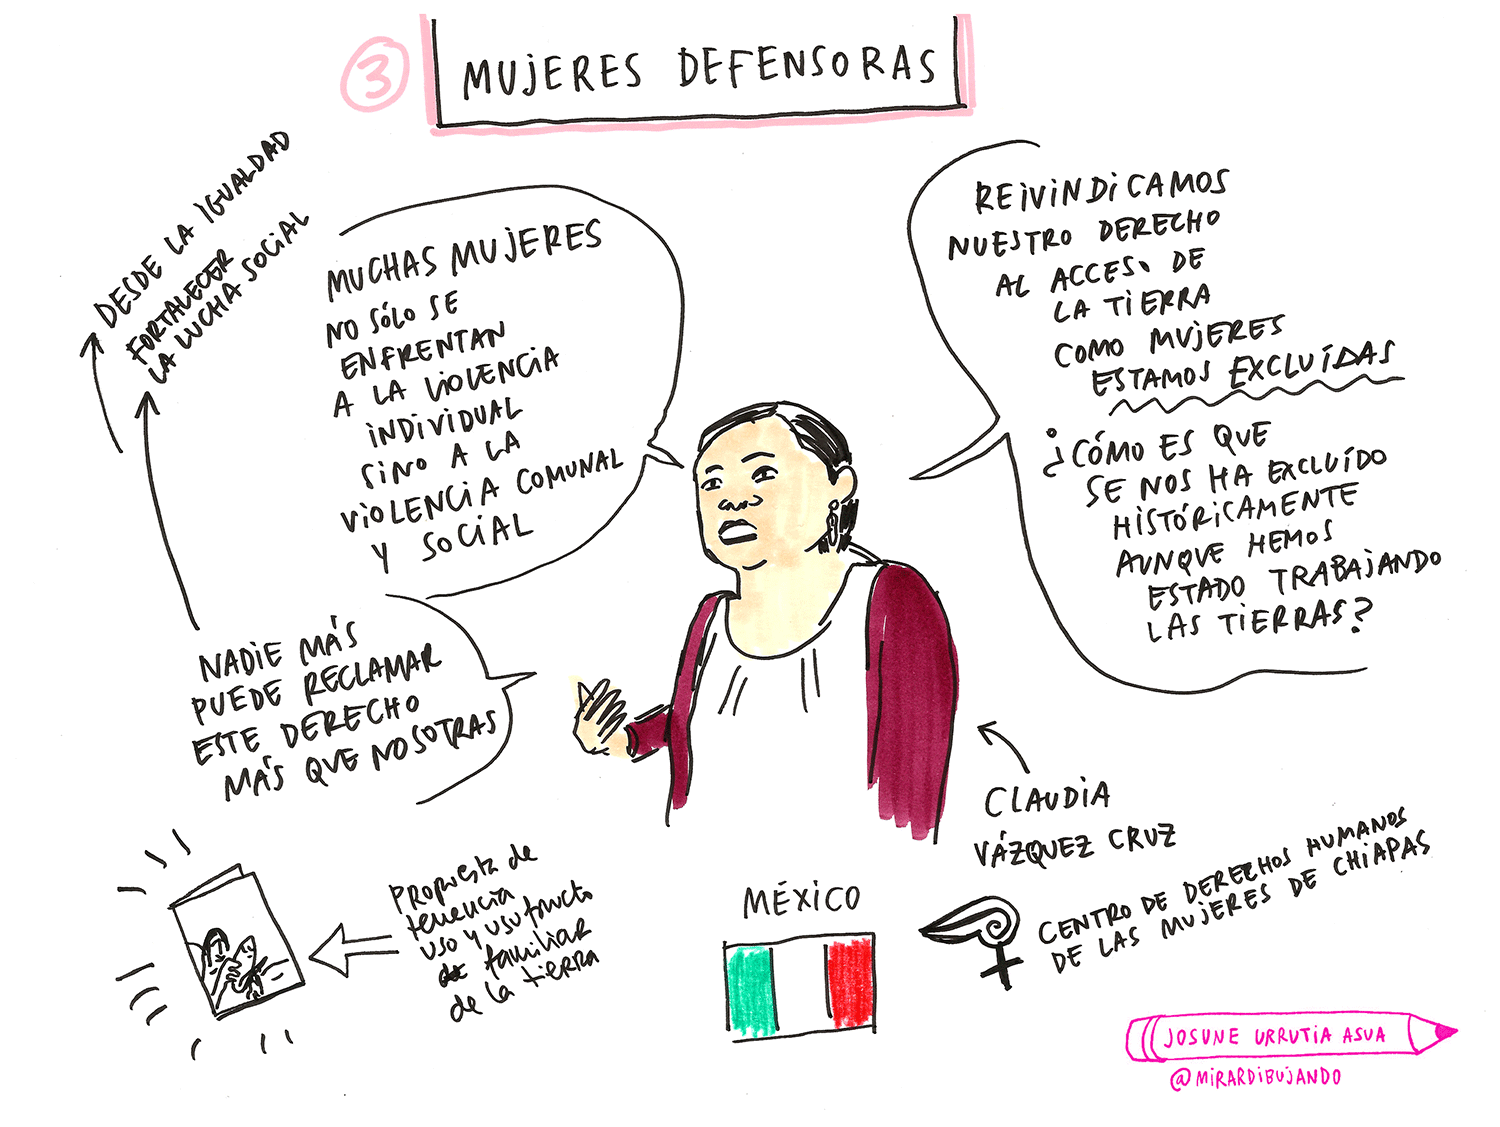 3
MUJERES DEFENSORAS
DESDE LA IGUALDAD
FORTALECER
LA LUCHA SOCIAL
MUCHAS MUJERES
NO SÓLO SE
ENFRENTAN
A LA VIOLENCIA
INDIVIDUAL
SINO A LA
VIOLENCIA COMUNAL
Y SOCIAL
NADIE MÁS
PUEDE RECLAMAR
ESTE DERECHO
MÁS QUE NOSOTRAS
REIVINDICAMOS
NUESTRO DERECHO
AL ACCESO DE
LA TIERRA
COMO MUJERES
ESTAMOS EXCLUÍDAS
¿CÓMO ES QUE
SE NOS HA EXCLUÍDO
HISTÓRICAMENTE
AUNQUE HEMOS
ESTADO TRABAJANDO
LAS TIERRAS?
CLAUDIA
VÁZQUEZ CRUZ
CENTRO DE DERECHOS HUMANOS
DE LAS MUJERES DE CHIAPAS
MÉXICO
Propuesta de
tenencia
uso y usufructo
familiar
de la tierra
JOSUNE URRUTIA ASUA
@MIRARDIBUJANDO